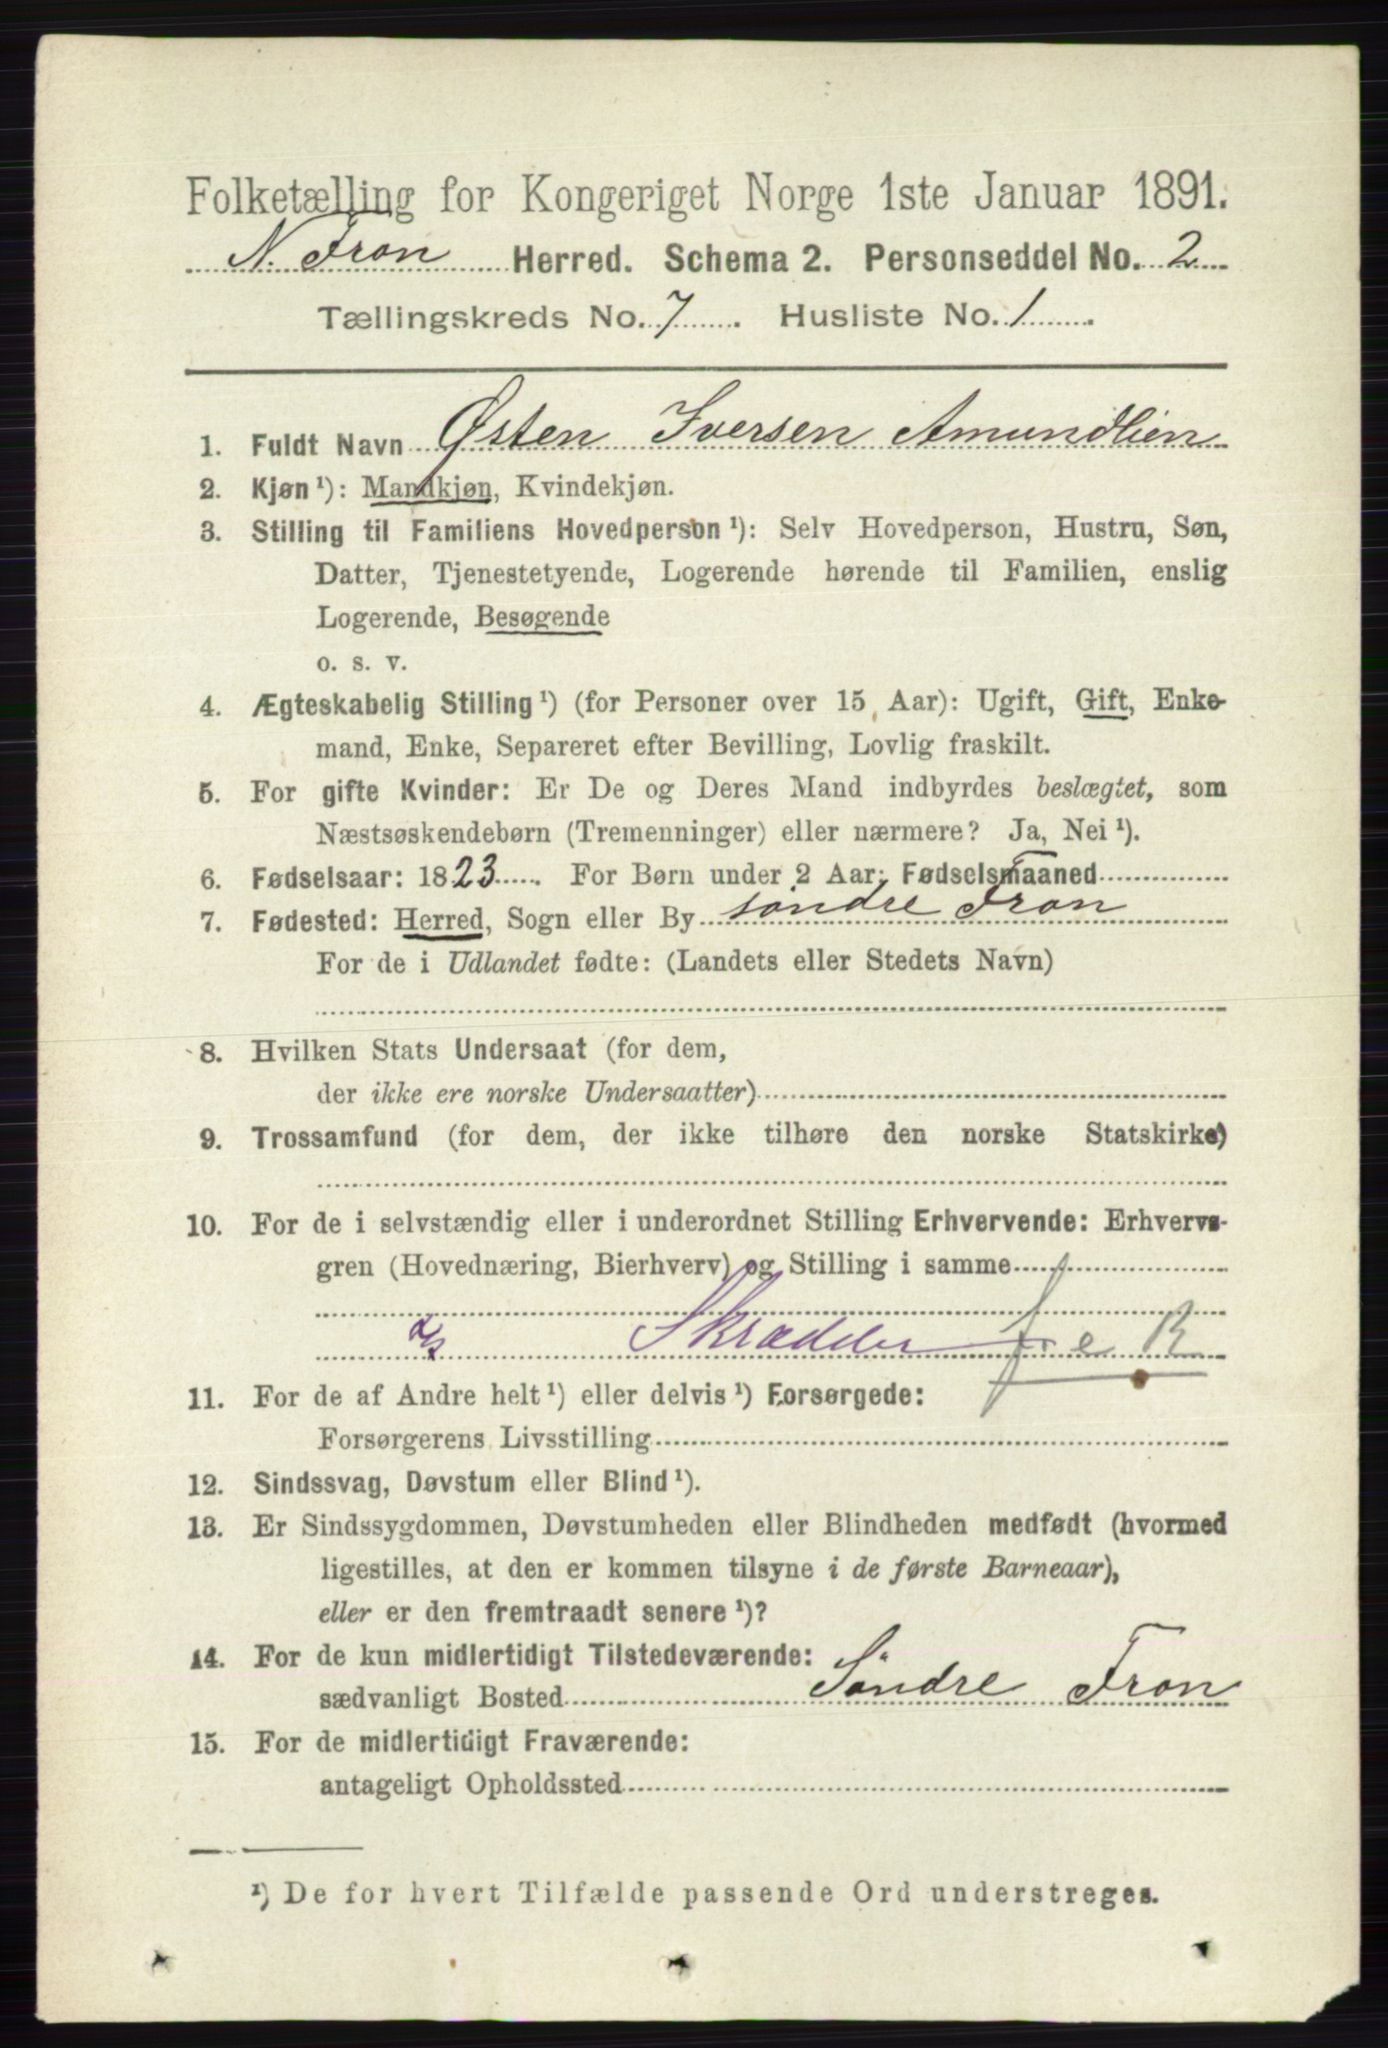 Folketælling for Kongeriget Norge 1ste Januar 1891.
N. Fron Herred. Schema 2. Personseddel No. 2
Tællingskreds No. 7. Husliste No. 1.
1. Fuldt Navn Østen Iversen Amundlien
2. Kjøn ¹): Mandkjøn, Kvindekjøn.
3. Stilling til Familiens Hovedperson ¹): Selv Hovedperson, Hustru, Søn,
Datter, Tjenestetyende, Logerende hørende til Familien, enslig
Logerende, Besøgende
o. s. v.
4. Ægteskabelig Stilling ¹) (for Personer over 15 Aar): Ugift, Gift, Enke-
mand, Enke, Separeret efter Bevilling, Lovlig fraskilt.
5. For gifte Kvinder: Er De og Deres Mand indbyrdes beslægtet, som
Næstsøskendebørn (Tremenninger) eller nærmere? Ja, Nei ¹).
6. Fødselsaar: 1823. For Børn under 2 Aar: Fødselsmaaned
7. Fødested: Herred, Sogn eller By söndre Fron
For de i Udlandet fødte: (Landets eller Stedets Navn)
8. Hvilken Stats Undersaat (for dem,
der ikke ere norske Undersaatter)
9. Trossamfund (for dem, der ikke tilhøre den norske Statskirke)
10. For de i selvstændig eller i underordnet Stilling Erhvervende: Erhvervs-
gren (Hovednæring, Bierhverv) og Stilling i samme
Skrædder
11. For de af Andre helt ¹) eller delvis ¹) Forsørgede:
Forsørgerens Livsstilling
12. Sindssvag, Døvstum eller Blind ¹).
13. Er Sindssygdommen, Døvstumheden eller Blindheden medfødt (hvormed
ligestilles, at den er kommen tilsyne i de første Barneaar),
eller er den fremtraadt senere ¹)?
14. For de kun midlertidigt Tilstedeværende:
sædvanligt Bosted Söndre Fron
15. For de midlertidigt Fraværende:
antageligt Opholdssted
¹) De for hvert Tilfælde passende Ord understreges.